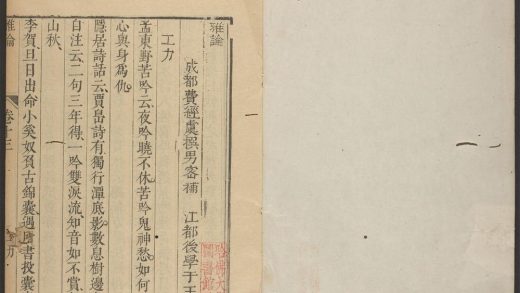 雅論
成都費經虞撰男密補 江都後學于王
工力
孟東野苦吟云夜吟曉不休苦吟鬼神愁如何
心與身為仇
隱居詩話云賈島詩有獨行潭底影數息樹邊
自注云二句三年得一吟雙淚流知音如不賞
山秋
李賀旦日出命小奚奴負古錦囊遇書投囊
雅論 卷十三
哈佛大
圖書館